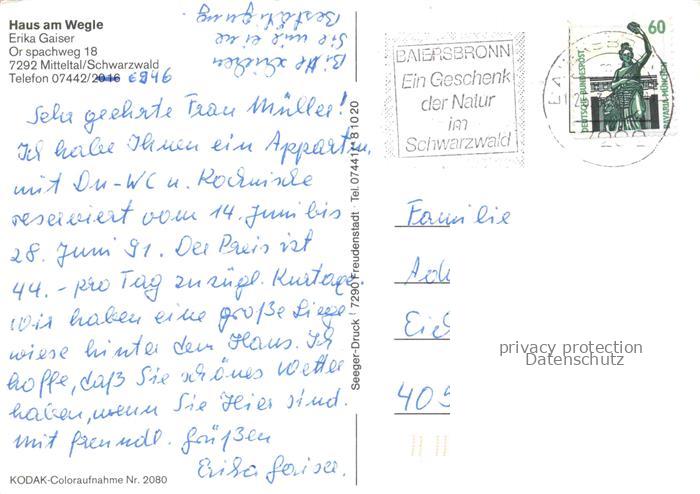 Haus am Wegle
Erika Gaiser
Or spachweg 18
7292 Mitteltal/Schwarzwald
Telefon 07442/2016
Bitte schicken
Sie mir eine
Bestätigung.
Sehr geehrte Frau Müller!
Ich habe Ihnen ein Appartm.
mit Du-WC u. Kochnische
reserviert vom 14. Juni bis
28. Juni 91. Der Preis ist
44.- pro Tag zuzügl. Kurtaxe.
Wir haben eine große Liege
wiese hinter dem Haus. Ich
hoffe, daß Sie schönes Wetter
haben, wenn Sie Hier sind.
mit freundl. Grüßen
Erika Gaiser.
KODAK-Coloraufnahme Nr. 2080
Seeger-Druck 7290 Freudenstadt Tel. 07441 / 8 10 20
BAIERSBRONN
Ein Geschenk
der Natur
im
Schwarzwald
60
DEUTSCHE BUNDESPOST
BAVARIA MÜNCHEN
Familie
privacy protection
Datenschutz